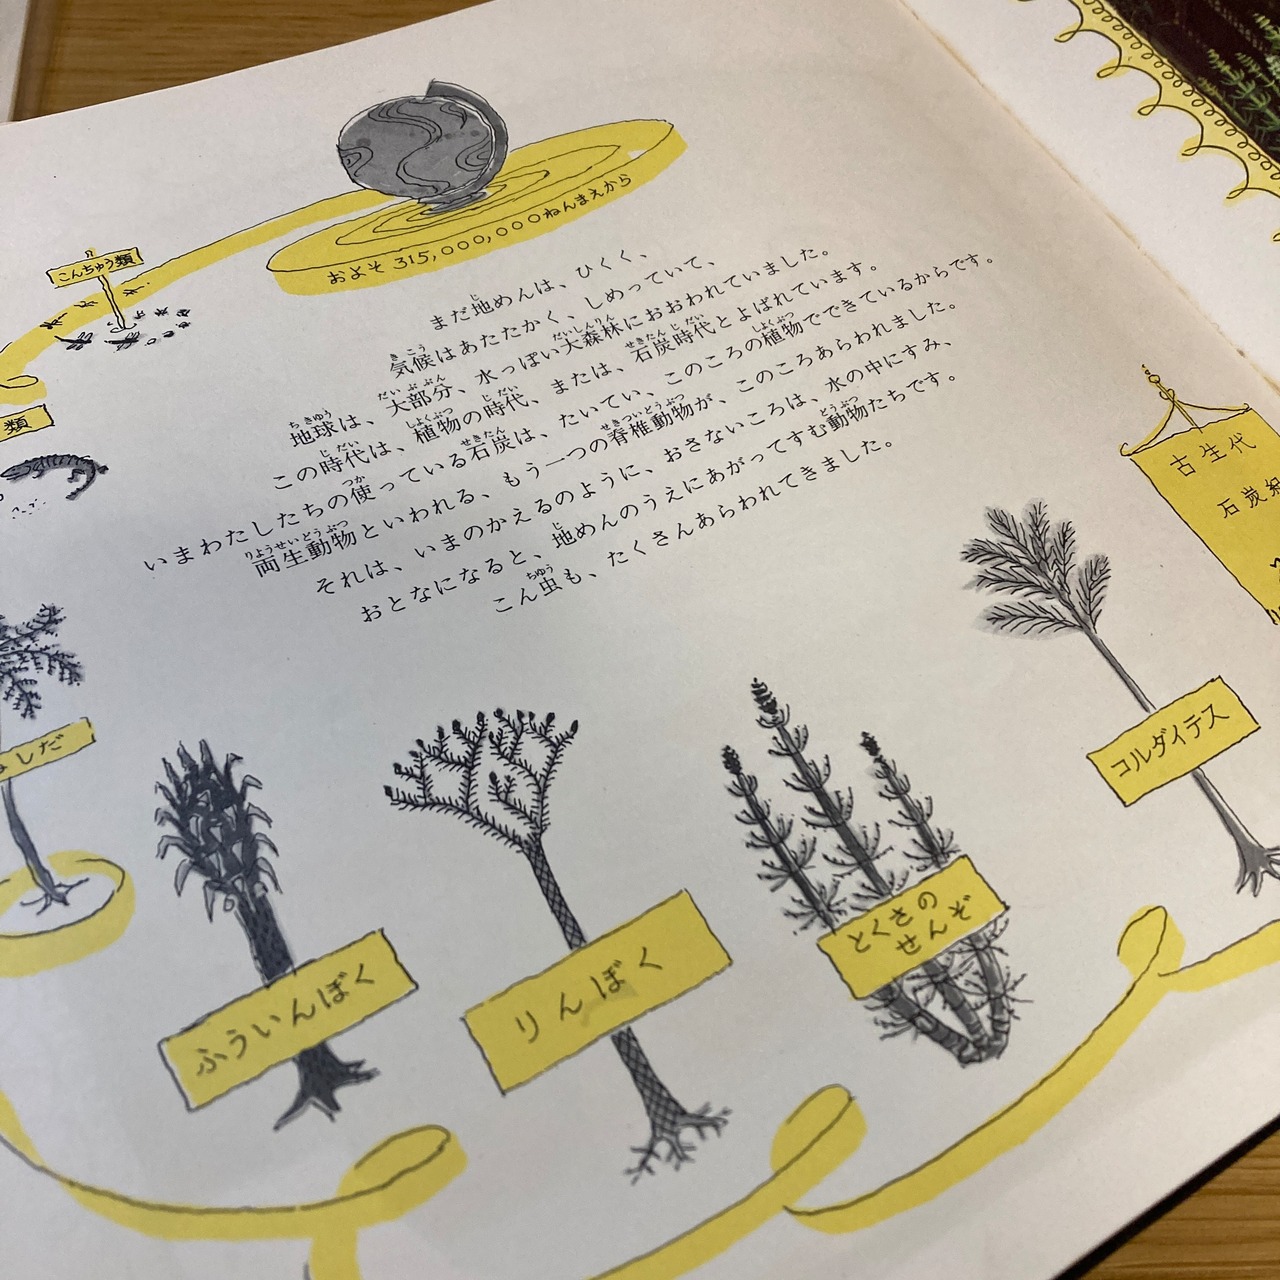 およそ 315,000,000ねんまえから
こんちゅう類
類
まだ地めんは、ひくく、
気候はあたたかく、しめっていて、
地球は、大部分、水っぽい大森林におおわれていました。
この時代は、植物の時代、または、石炭時代とよばれています。
いまわたしたちの使っている石炭は、たいてい、このころの植物でできているからです。
両生動物といわれる、もう一つの脊椎動物が、このころあらわれました。
それは、いまのかえるのように、おさないころは、水の中にすみ、
おとなになると、地めんのうえにあがってすむ動物たちです。
こん虫も、たくさんあらわれてきました。
古生代
石炭紀
しだ
ふういんぼく
りんぼく
とくさの
せんぞ
コルダイテス